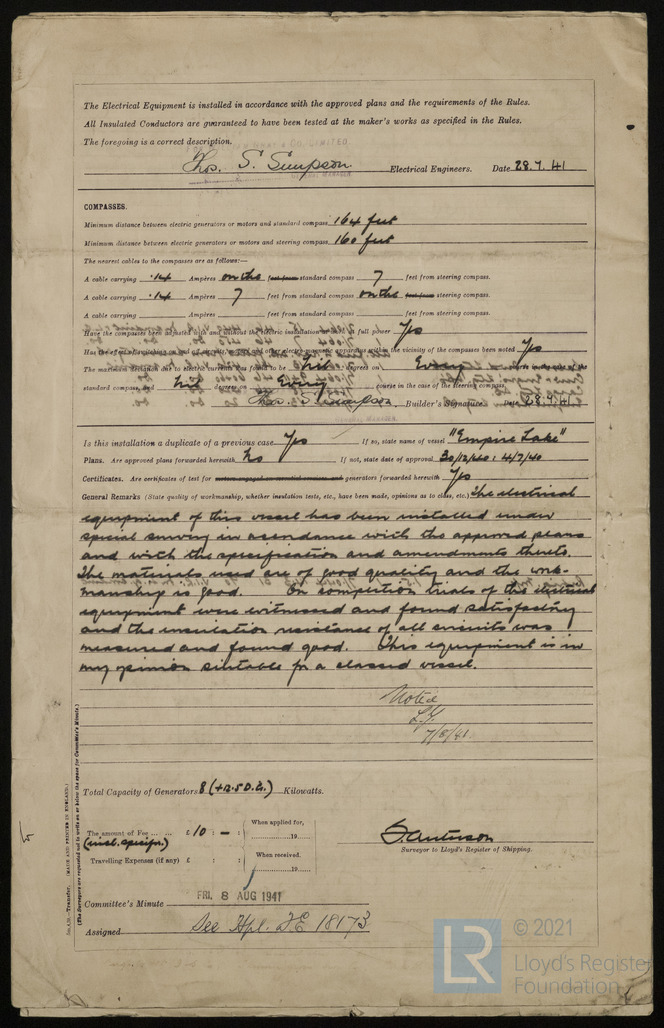 The Electrical Equipment is installed in accordance with the approved plans and the requirements of the Rules.
All Insulated Conductors are guaranteed to have been tested at the maker's works as specified in the Rules.
The foregoing is a correct description.
Thos. S. Simpson Electrical Engineers. Date 28.7.41
COMPASSES.
Minimum distance between electric generators or motors and standard compass 164 feet
Minimum distance between electric generators or motors and steering compass 160 feet
The nearest cables to the compasses are as follows:—
A cable carrying .14 Ampères on the feet from standard compass 7 feet from steering compass.
A cable carrying .14 Ampères 7 feet from standard compass on the feet from steering compass.
A cable carrying Ampères feet from standard compass feet from steering compass.
Have the compasses been adjusted with and without the electric installation at full power Yes
Has the effect of switching on and off circuits, motors and other electro magnetic apparatus within the vicinity of the compasses been noted Yes
The maximum deviation due to electric currents was found to be Nil degrees on Every course in the case of the
standard compass, and Nil degrees on Every course in the case of the steering compass.
Thos. S. Simpson Builder's Signature. Date 28.7.41
Is this installation a duplicate of a previous case Yes If so, state name of vessel "Empire Lake"
Plans. Are approved plans forwarded herewith No If not, state date of approval 30/12/40 : 4/7/40
Certificates. Are certificates of test for generators forwarded herewith Yes
General Remarks (State quality of workmanship, whether insulation tests, etc., have been made, opinions as to class, etc.) The electrical
equipment of this vessel has been installed under
special survey in accordance with the approved plans
and with the specification and amendments thereto.
The materials used are of good quality and the work-
manship is good. On completion trials of the electrical
equipment were witnessed and found satisfactory
and the insulation resistance of all circuits was
measured and found good. This equipment is in
my opinion suitable for a classed vessel.
Noted
7/8/41.
Total Capacity of Generators 8 (+12.5 D.E.) Kilowatts.
The amount of Fee ... ... £ 10 : — :
(incl. specifn.)
When applied for,
19
Travelling Expenses (if any) £ : :
When received.
19
Surveyor to Lloyd's Register of Shipping.
Committee's Minute FRI. 8 AUG 1941
Assigned See Hpl. F.E. 18173
Transfer. (MADE AND PRINTED IN ENGLAND.)
(The Surveyors are requested not to write on or below the space for Committee's Minute.)
LR
© 2021
Lloyd's Register
Foundation